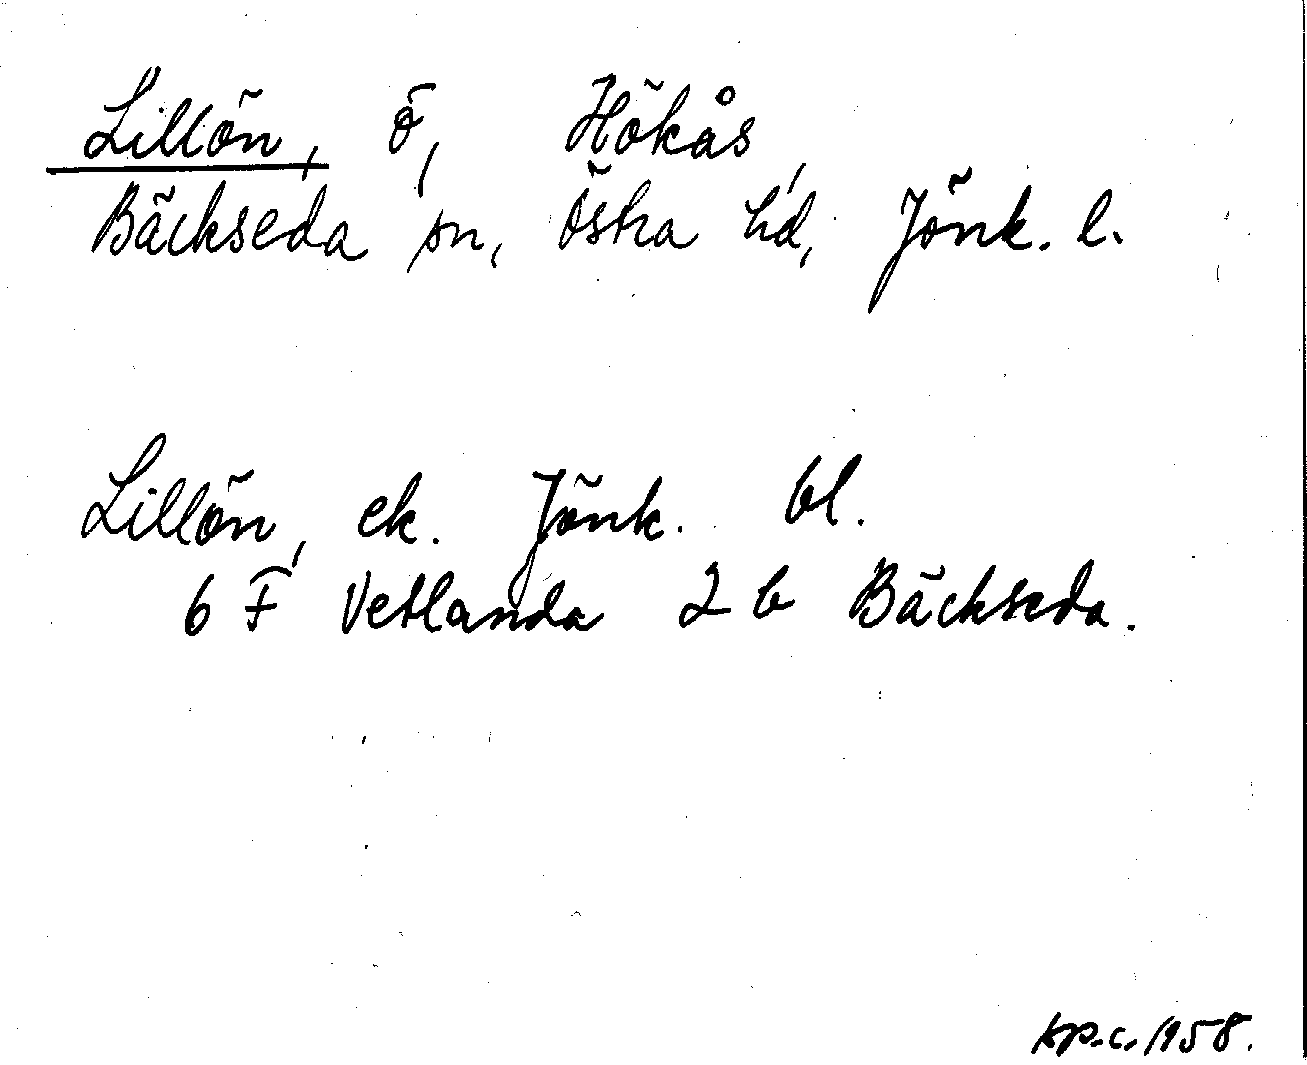 Lillön, ö, Hökås,
Bäckseda sn, Östra hd, Jönk. l.
Lillön, ek. Jönk. bl.
6 F Vetlanda 2 b Bäckseda.
kp.c. 1958.